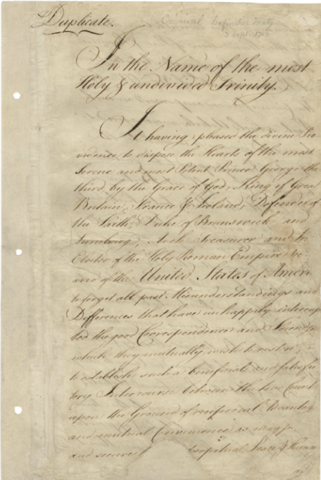 Duplicate.
In the Name of the most
Holy & undivided Trinity.
It having pleased the divine Pro
vidence to dispose the Hearts of the most
Serene and most Potent Prince George the
third, by the Grace of God, King of Great
Britain, France & Ireland, Defender of
the Faith, Duke of Brunswick and
Lunebourg, Arch Treasurer, and Prince
Elector of the Holy Roman Empire &c.
and of the United States of America
to forget all past Misunderstandings and
Differences that have unhappily interrup
ted the good Correspondence and Friendship
which they mutually wish to restore;
to establish such a beneficial and satisfac
tory Intercourse between the two Countries
upon the Ground of reciprocal Advantages
and mutual Convenience as may
and secure perpetual Peace & Harmony